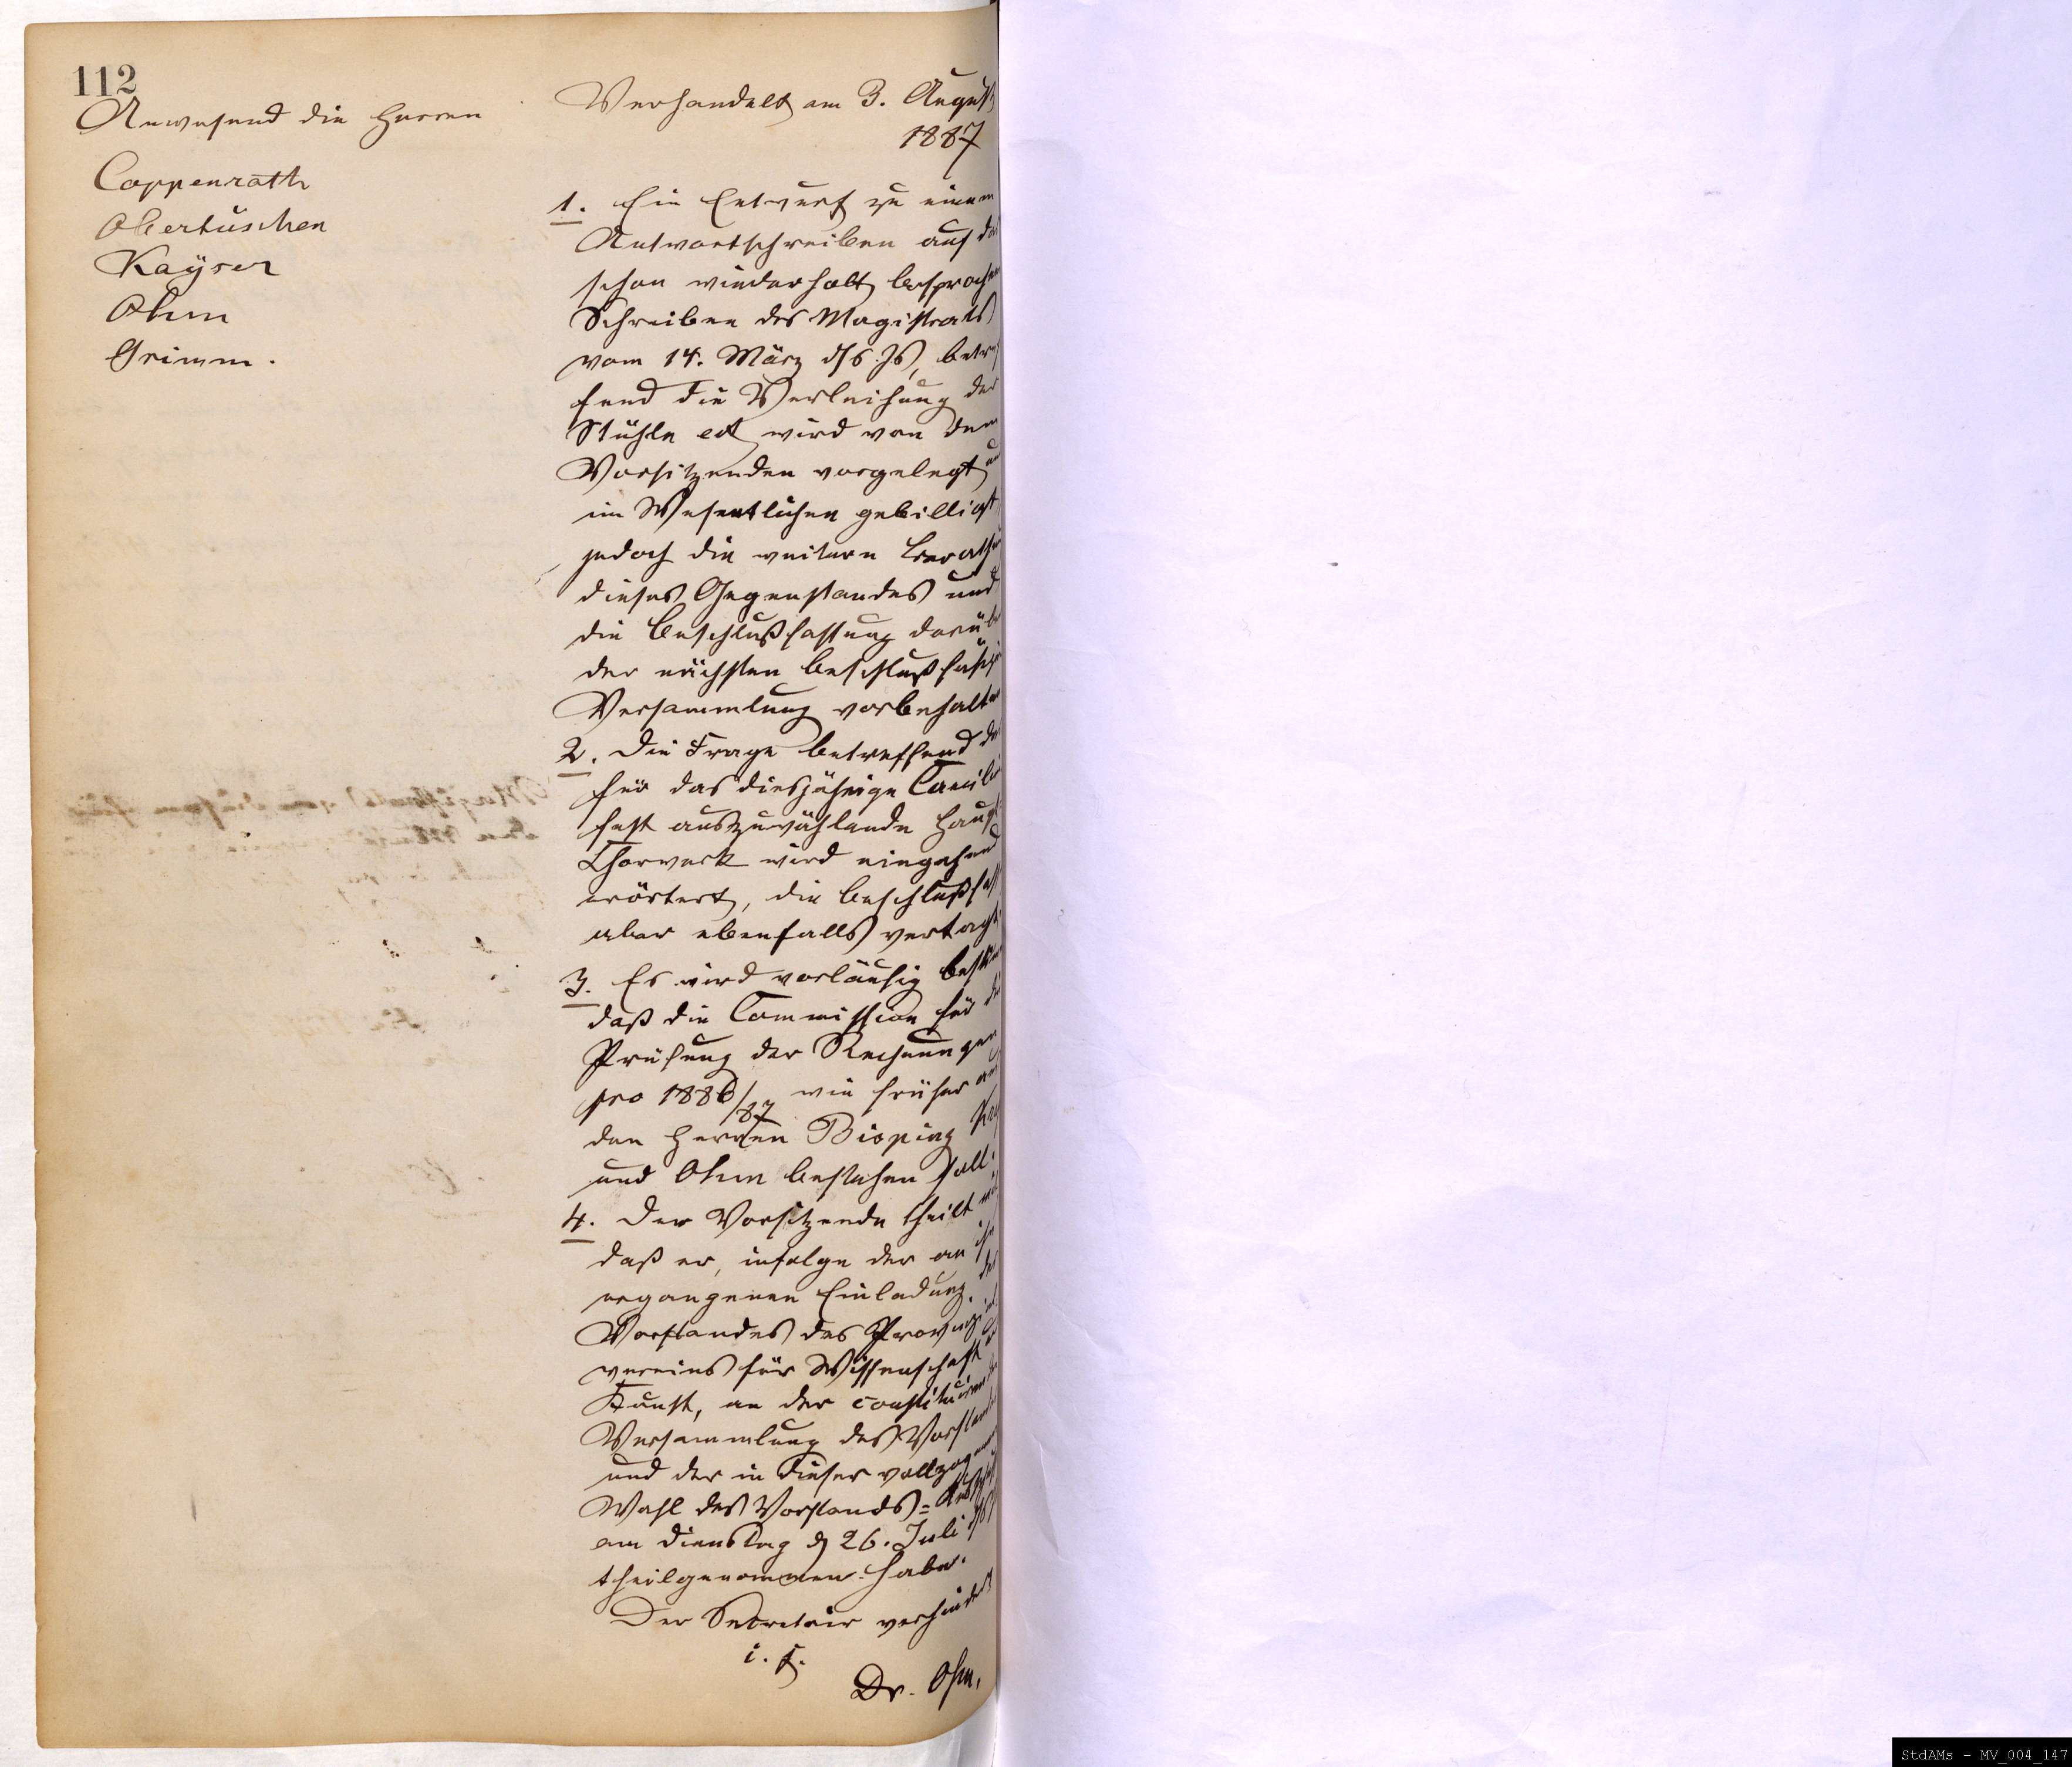 112
Anwesend die Herren
Coppenrath
Obertüschen
Kaÿser
Ohm
Grimm.
Verhandelt am 3. August
1887
1. Ein Entwurf zu einem
Antwortschreiben auf das
schon wiederholt besprochen
Schreiben des Magistrats
vom 14. März d/s. Js, betref
fend die Verleihung der
Stühle ect wird von dem
Vorsitzenden vorgelegt un
im Wesentlichen gebilligt,
jedoch die weitere Berathu
dieses Gegenstandes und
die Beschlußfassung darübe
der nächsten beschlußfähige
Versammlung vorbehalten
2. Die Frage betreffend das
für das diesjährige Caecilie
fest auszuwählende Haupt
Chorwerk wird eingehend
erörtert, die Beschlußfass
aber ebenfalls vertagt.
3. Es wird vorläufig bestim
daß die Commission für die
Prüfung der Rechnungen
pro 1886/87 wie früher aus
den Herren Bisping Kay
und Ohm bestehen soll.
4. Der Vorsitzende theilt mit
daß er, infolge der an ihn
ergangenen Einladung des
Vorstandes des Provinzial
vereins für Wissenschaft u
Kunst, an der constituirenden
Versammlung des Vorstandes
und der in dieser vollzogenen
Wahl des Vorstands=Ausschuß
am Dienstag d 26. Juli d/s
theilgenommen habe.
Der Secretair verhindert
i. f.
Dr. Ohm.
StdAMs - MV_004_147